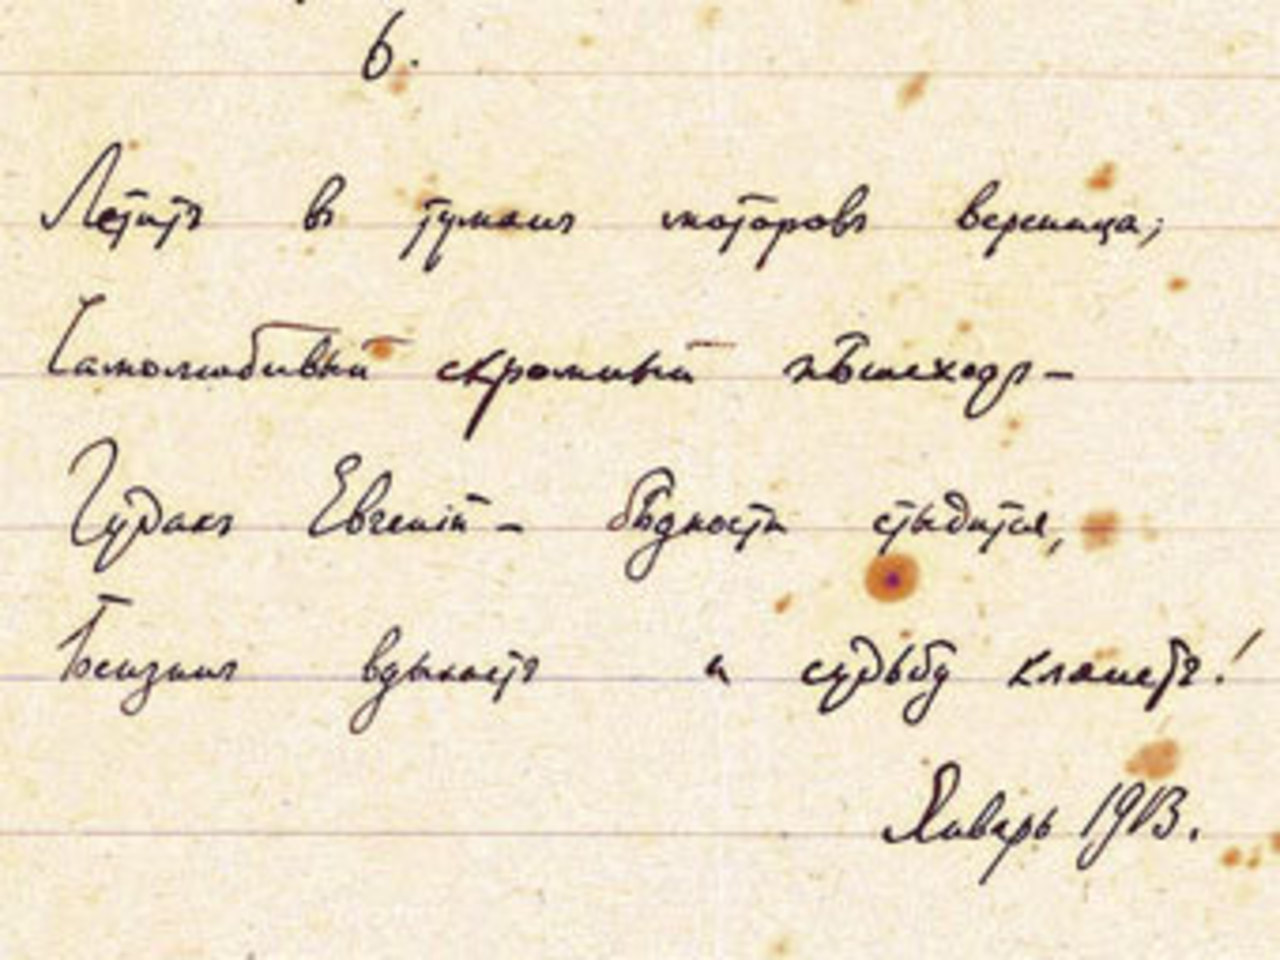 6.
Летитъ въ туманъ моторовъ вереница;
Самолюбивый скромный пѣшеходъ –
Чудакъ Евгеній – бѣдности стыдится,
Бензинъ вдыхаетъ и судьбу клянетъ!
Январь 1913.